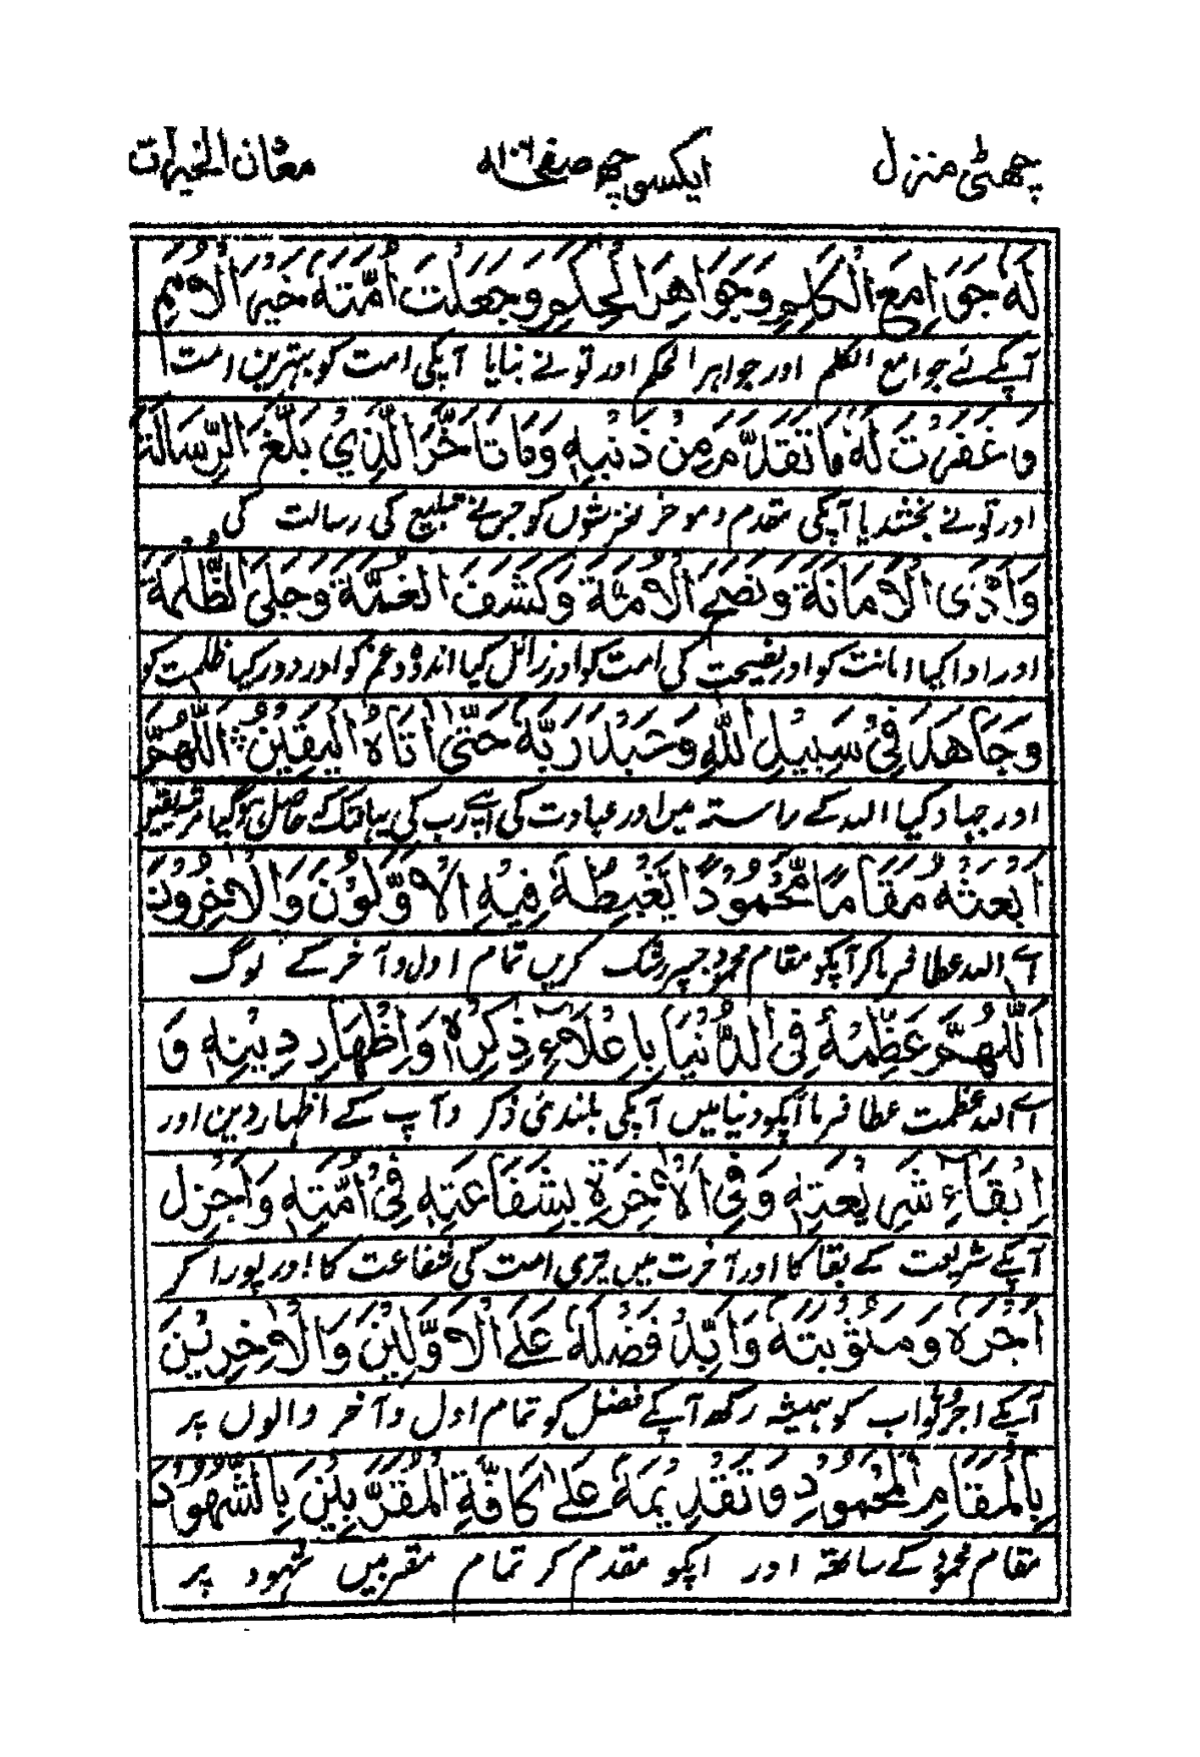 چھٹی منزل ایکسو چھ صفحہ ۱۰۶ معان الخیرات
لَهٗ جَوَامِعَ الْكَلِمِ وَجَوَاهِرَ الْحِكَمِ وَجَعَلْتَ اُمَّتَهٗ خَيْرَ الْاُمَمِ
آپکے لئے جوامع الکلم اور جواہر الحکم اور تونے بنایا آپکی امت کو بہترین امت
وَغَفَرْتَ لَهٗ مَا تَقَدَّمَ مِنْ ذَنْبِهٖ وَمَا تَاَخَّرَ الَّذِيْ بَلَّغَ الرِّسَالَةَ
اور تونے بخشدیا آپکی مقدم و موخر لغزشوں کو جس نے تبلیغ کی رسالت کی
وَاَدَّى الْاَمَانَةَ وَنَصَحَ الْاُمَّةَ وَكَشَفَ الْغُمَّةَ وَجَلَى الظُّلْمَةَ
اور ادا کیا امانت کو اور نصیحت کی امت کو اور زائل کیا اندوہ و غم کو اور دور کیا ظلمت کو
وَجَاهَدَ فِيْ سَبِيْلِ اللّٰهِ وَعَبَدَ رَبَّهٗ حَتّٰى اَتَاهُ الْيَقِيْنُ اَللّٰهُمَّ
اور جہاد کیا اللہ کے راستہ میں اور عبادت کی اپنے رب کی یہانتک کہ حاصل ہوگیا مرتبہ یقین
ابْعَثْهُ مَقَامًا مَّحْمُوْدًا يَّغْبِطُهٗ فِيْهِ الْاَوَّلُوْنَ وَالْاٰخِرُوْنَ
اے اللہ عطا فرما کر آپکو مقام محمود جسپر رشک کریں تمام اول و آخر کے لوگ
اَللّٰهُمَّ عَظِّمْهُ فِي الدُّنْيَا بِاِعْلَاءِ ذِكْرِهٖ وَاِظْهَارِ دِيْنِهٖ وَ
اے اللہ عظمت عطا فرما آپکو دنیا میں آپکی بلندئی ذکر و آپ کے اظہار دین اور
اِبْقَاءِ شَرِيْعَتِهٖ وَفِي الْاٰخِرَةِ بِشَفَاعَتِهٖ فِيْ اُمَّتِهٖ وَاَجْزِلْ
آپکے شریعت کے بقا کا اور آخرت میں تیری امت کی شفاعت کا اور پورا کر
اَجْرَهٗ وَمَثُوْبَتَهٗ وَاَبِّدْ فَضْلَهٗ عَلَى الْاَوَّلِيْنَ وَالْاٰخِرِيْنَ
آپکے اجر و ثواب کو ہمیشہ رکھ آپکے فضل کو تمام اول و آخر والوں پر
بِالْمَقَامِ الْمَحْمُوْدِ وَتَقْدِيْمَهٗ عَلٰى كَافَّةِ الْمُقَرَّبِيْنَ بِالشُّهُوْدِ
مقام محمود کے ساتھ اور اپکو مقدم کر تمام مقربیں شہود پر